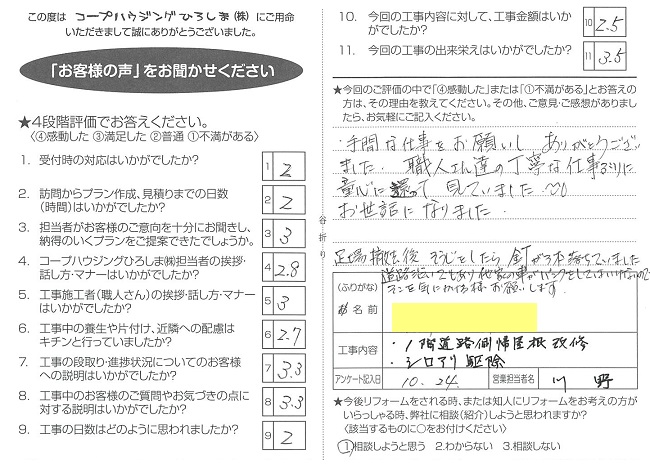 この度は コープハウジングひろしま(株) にご用命
いただきまして誠にありがとうございました。
「お客様の声」をお聞かせください
★4段階評価でお答えください。
〈④感動した ③満足した ②普通 ①不満がある〉
1. 受付時の対応はいかがでしたか?
1 2
2. 訪問からプラン作成、見積りまでの日数
(時間)はいかがでしたか?
2 2
3. 担当者がお客様のご意向を十分にお聞きし、
納得のいくプランをご提案できたでしょうか。
3 3
4. コープハウジングひろしま㈱担当者の挨拶・
話し方・マナーはいかがでしたか?
4 2.8
5. 工事施工者(職人さん)の挨拶・話し方・マナー
はいかがでしたか?
5 3
6. 工事中の養生や片付け、近隣への配慮は
キチンと行っていましたか?
6 2.7
7. 工事の段取り・進捗状況についてのお客様
への説明はいかがでしたか?
7 3.3
8. 工事中のお客様のご質問やお気づきの点に
対する説明はいかがでしたか?
8 3.3
9. 工事の日数はどのように思われましたか?
9 2
谷折り
10. 今回の工事内容に対して、工事金額はいか
がでしたか?
10 2.5
11. 今回の工事の出来栄えはいかがでしたか?
11 3.5
★今回のご評価の中で「④感動した」または「①不満がある」とお答えの
方は、その理由を教えてください。その他、ご意見・ご感想がありました
ら、お気軽にご記入ください。
手間な仕事をお願いし ありがとうござい
ました. 職人さん達の丁寧な仕事ぶりに
童心に還って 見ていました
お世話になりました.
足場撤去後 そうじをしたら 釘が3本落ちていました
道路
(ふりがな)
お名前
工事内容
・1階道路側帽屋根改修
・シロアリ駆除
アンケート記入日
10.24
営業担当者名
川野
★今後リフォームをされる時、または知人にリフォームをお考えの方が
いらっしゃる時、弊社に相談(紹介)しようと思われますか?
〈該当するものに○をお付けください〉
①相談しようと思う 2.わからない 3.相談しない